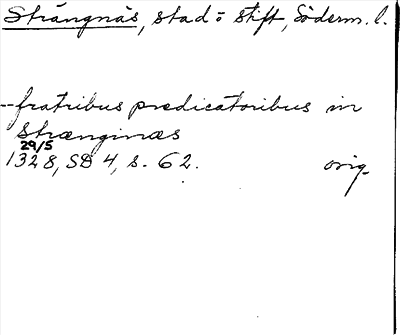 Strängnäs, stad o stift, Söderm. l.
--fratribus predicatoribus in
Strænginæs
29/5
1328, SD 4, s. 62. orig.